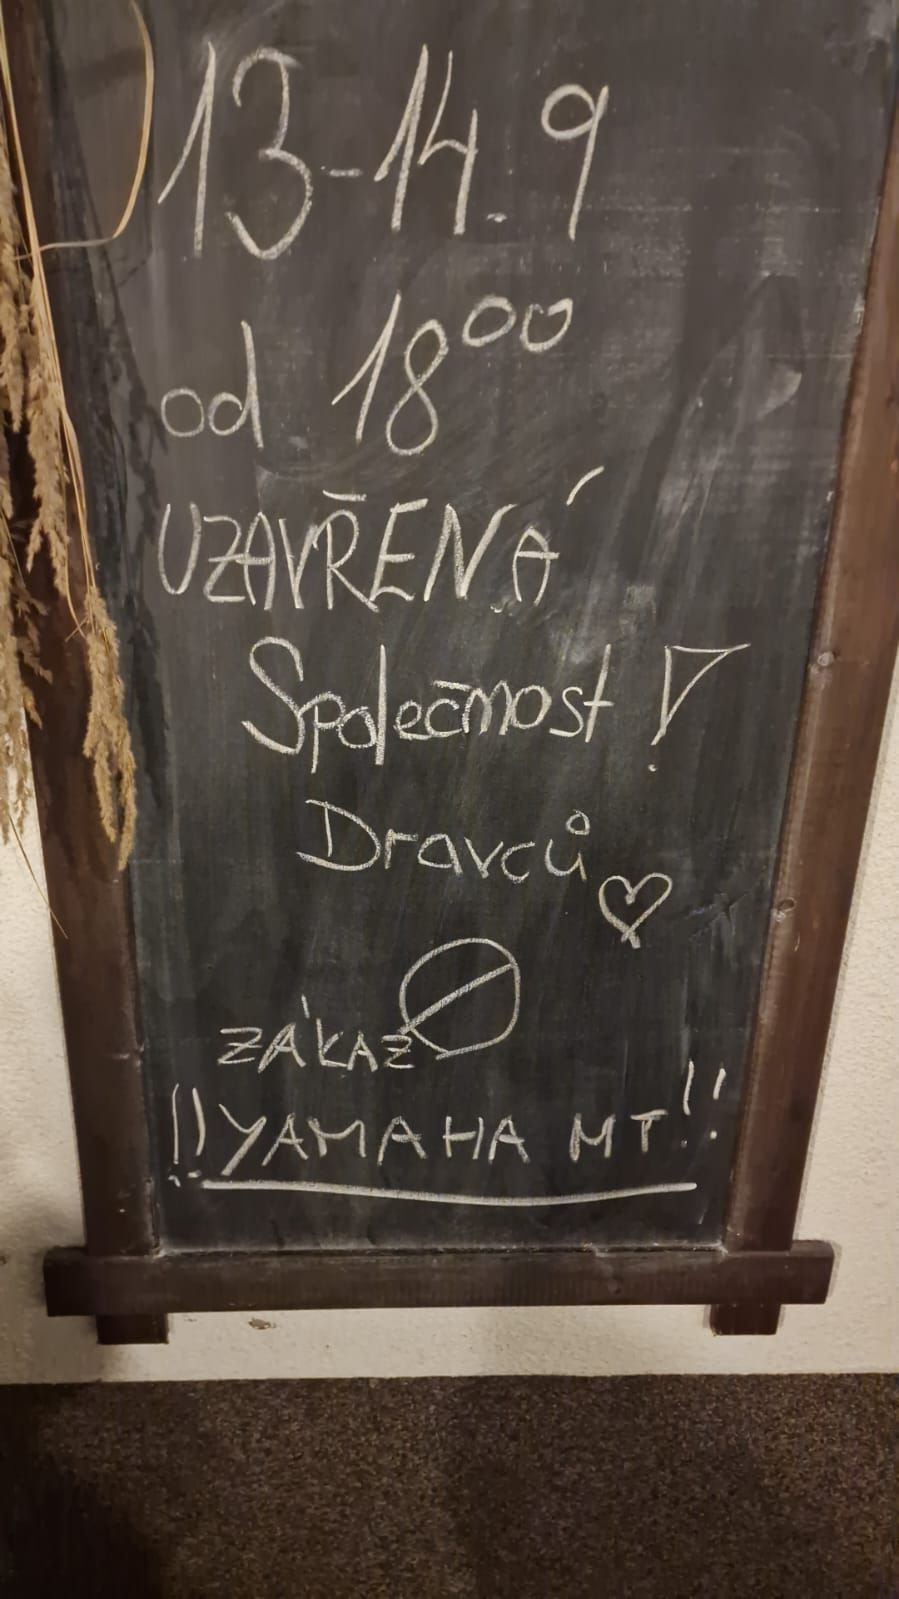 13-14.9
od 18⁰⁰
UZAVŘENÁ
Společnost!
Dravců ♡
ZÁKAZ
!!YAMAHA MT!!